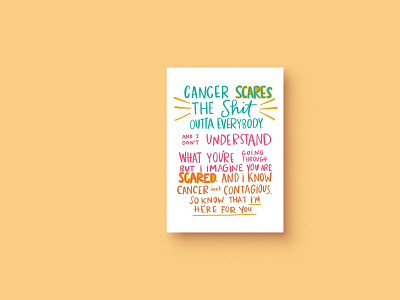 CANCER SCARES
THE Shit
OUTTA EVERYBODY.
AND I DON'T UNDERSTAND
WHAT YOU'RE GOING THROUGH
BUT I IMAGINE YOU ARE
SCARED. AND I KNOW
CANCER isn't CONTAGIOUS,
SO KNOW THAT I'M
HERE FOR YOU.